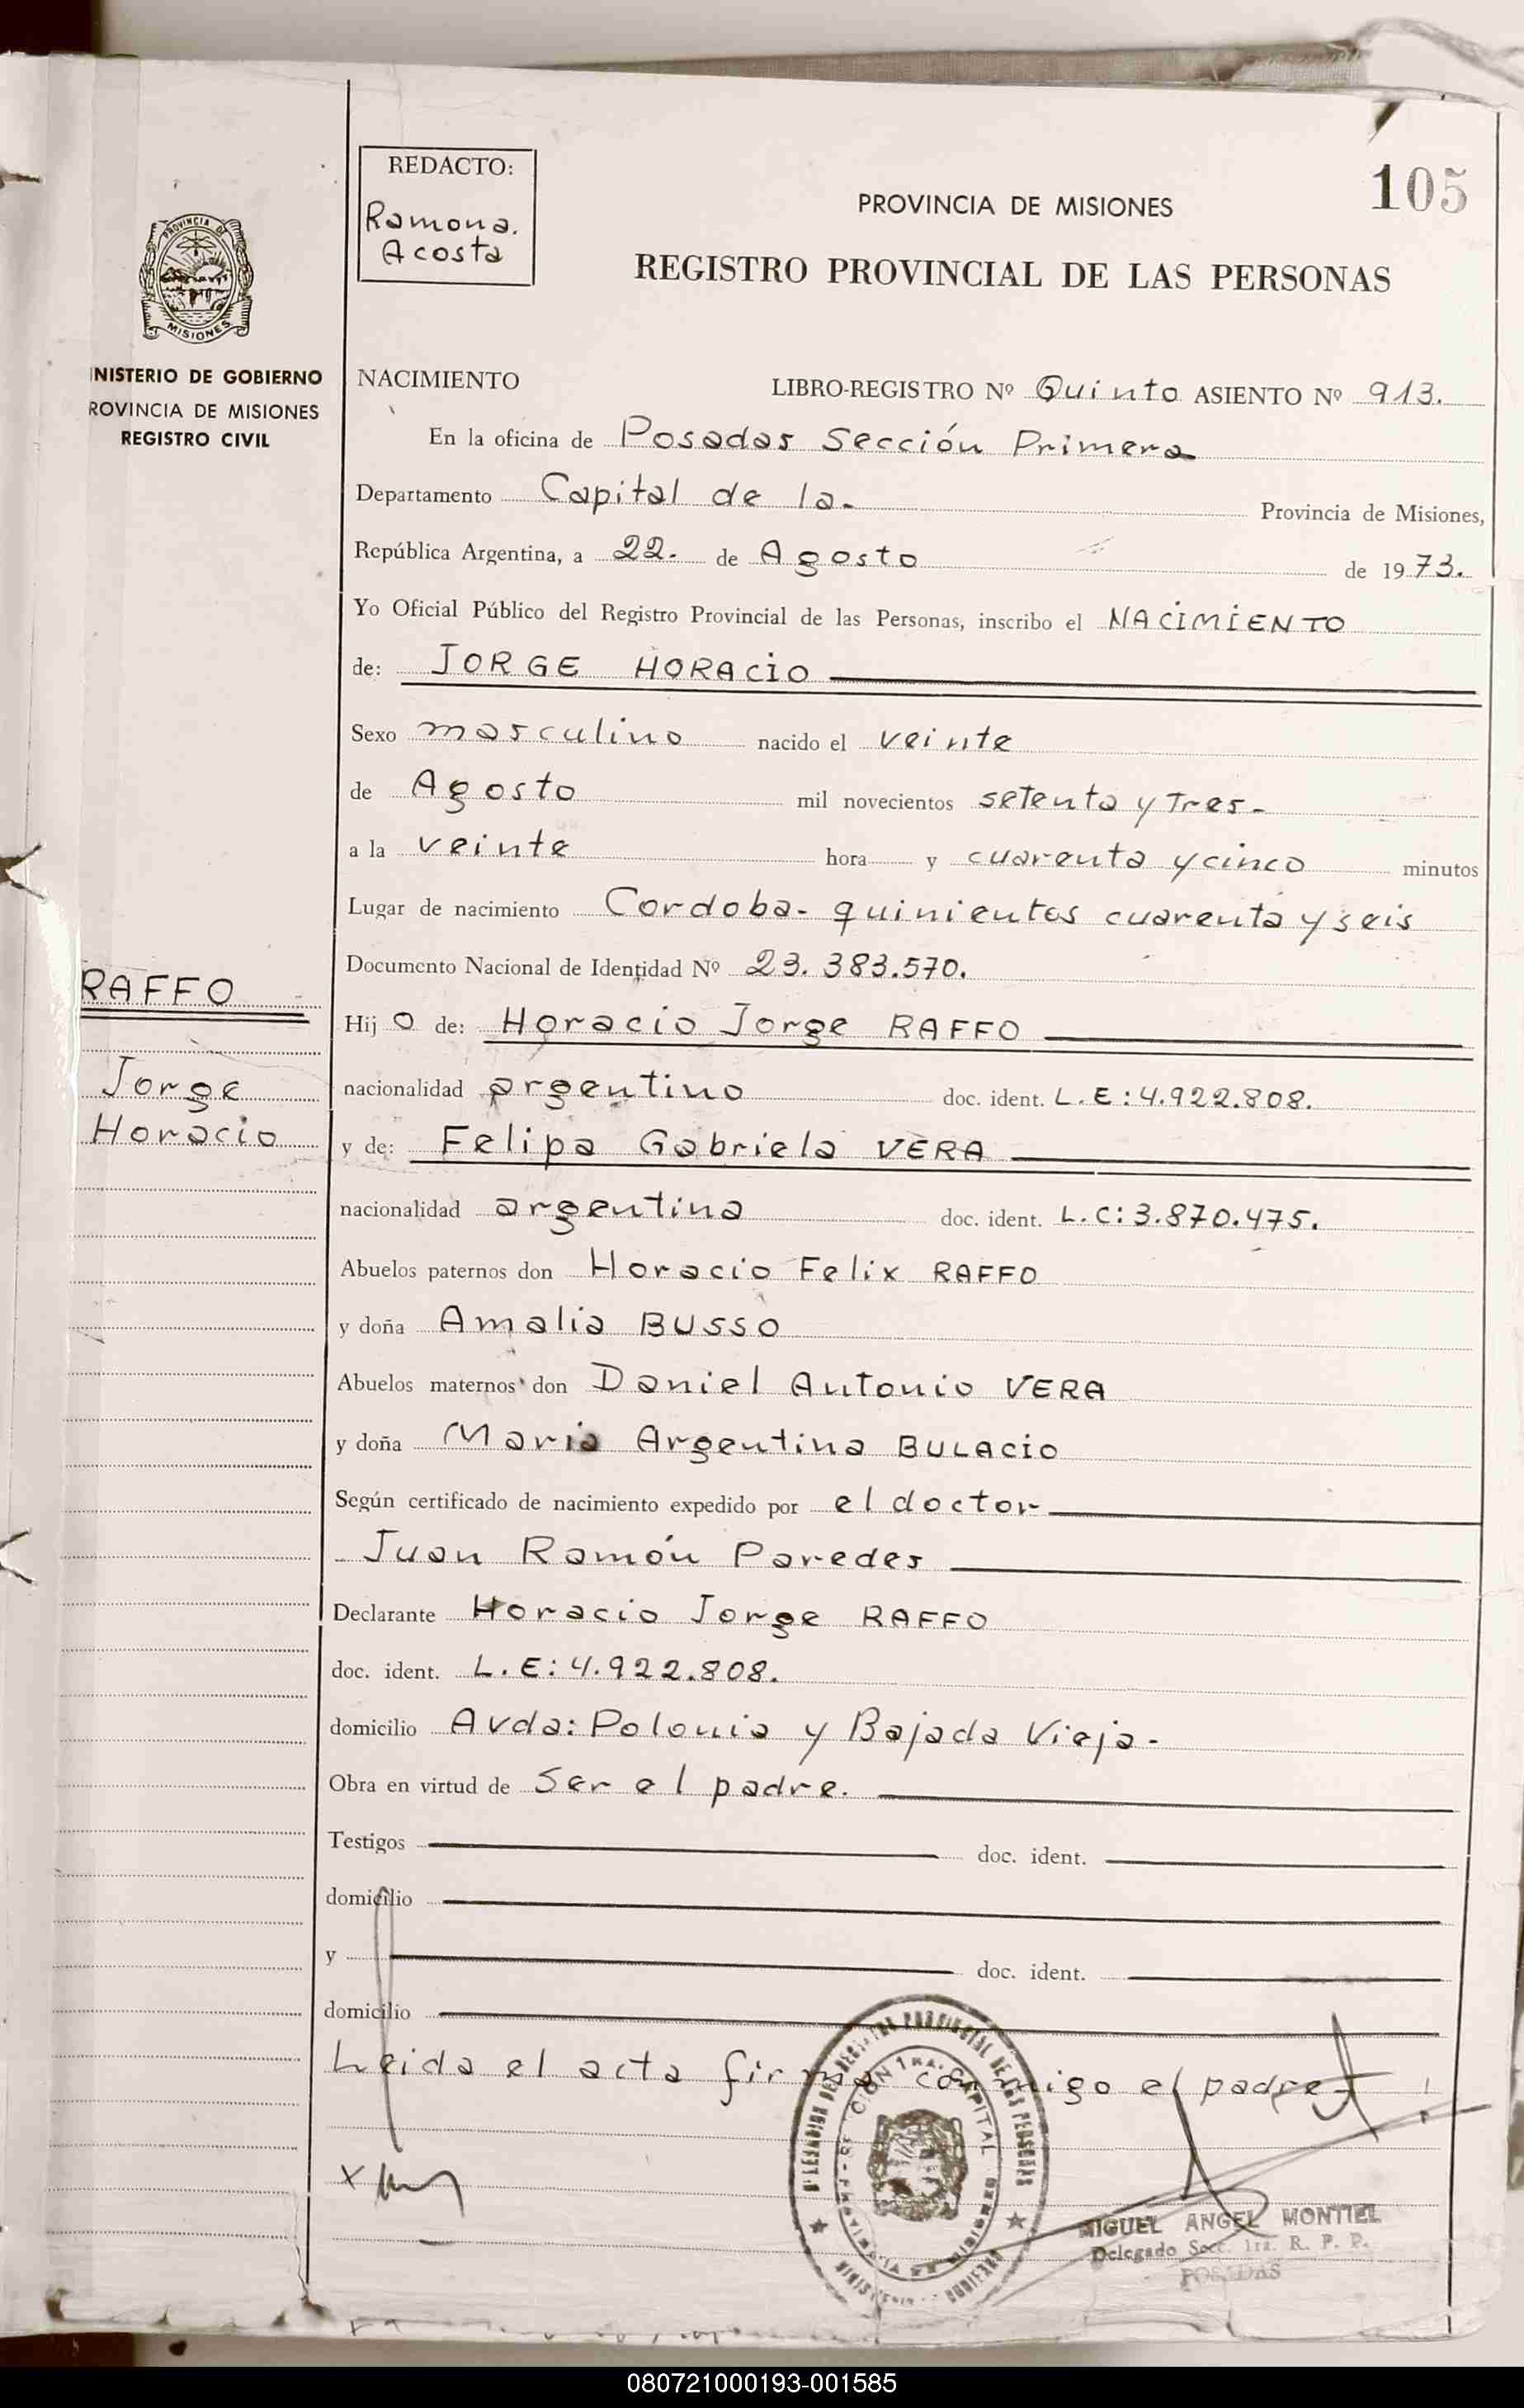 REDACTO:
Ramona.
Acosta
105
PROVINCIA DE MISIONES
REGISTRO PROVINCIAL DE LAS PERSONAS
PROVINCIA DE
MISIONES
INISTERIO DE GOBIERNO
ROVINCIA DE MISIONES
REGISTRO CIVIL
NACIMIENTO LIBRO-REGISTRO Nº Quinto ASIENTO Nº 913.
En la oficina de Posadas Sección Primera
Departamento Capital de la- Provincia de Misiones,
República Argentina, a 22. de Agosto de 1973.
Yo Oficial Público del Registro Provincial de las Personas, inscribo el NACIMIENTO
de: JORGE HORACIO
Sexo masculino nacido el veinte
de Agosto mil novecientos setenta y Tres-
a la veinte hora y cuarenta y cinco minutos
Lugar de nacimiento Cordoba- quinientos cuarenta y seis
Documento Nacional de Identidad Nº 23.383.570.
RAFFO
Jorge
Horacio
Hijo de: Horacio Jorge RAFFO
nacionalidad argentino doc. ident. L.E:4.922.808.
y de: Felipa Gabriela VERA
nacionalidad argentina doc. ident. L.C:3.870.475.
Abuelos paternos don Horacio Felix RAFFO
y doña Amalia BUSSO
Abuelos maternos don Daniel Antonio VERA
y doña Maria Argentina BULACIO
Según certificado de nacimiento expedido por el doctor
Juan Ramón Paredes
Declarante Horacio Jorge RAFFO
doc. ident. L.E:4.922.808.
domicilio Avda: Polonia y Bajada Vieja-
Obra en virtud de Ser el padre.
Testigos doc. ident.
domicilio
y doc. ident.
domicilio
Leida el acta firma conmigo el padre
MIGUEL ANGEL MONTIEL
Delegado Secc. 1ra. R. P. P.
POSADAS
080721000193-001585